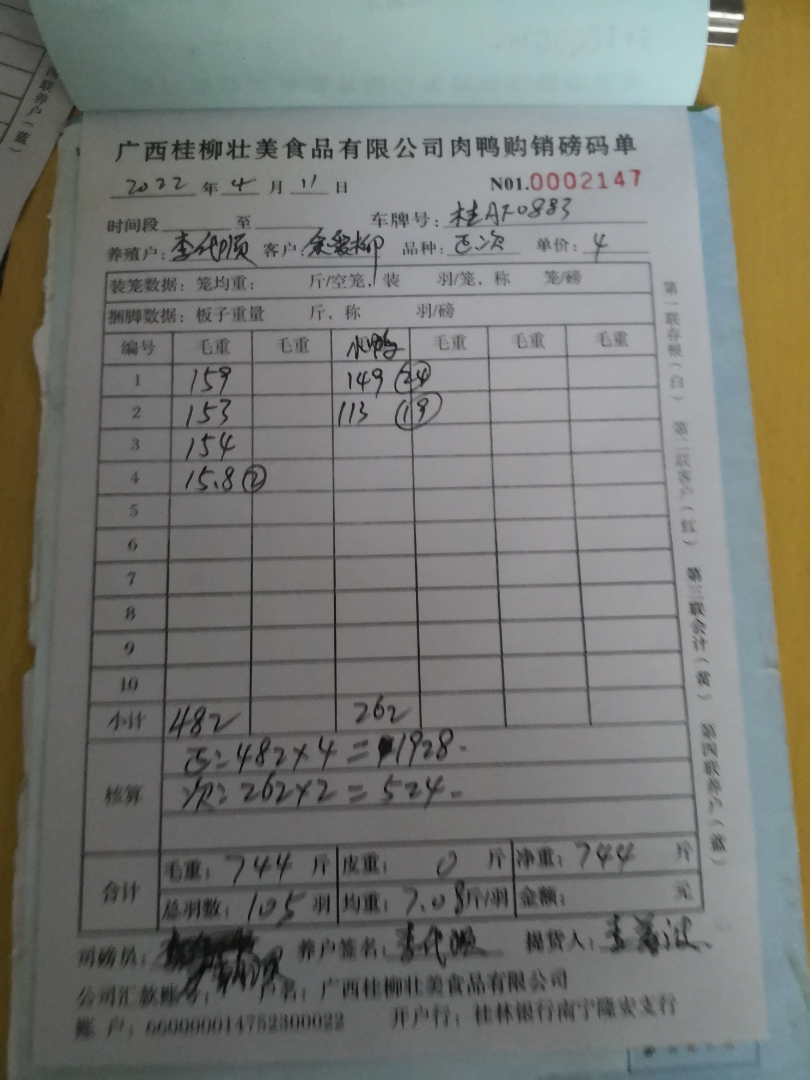 广西桂柳壮美食品有限公司肉鸭购销磅码单
2022 年 4 月 11 日 N01.0002147
时间段 至 车牌号: 桂AF0883
养殖户: 李代顺 客户: 品种: 正次 单价: 4
装笼数据: 笼均重: 斤/空笼, 装 羽/笼, 称 笼/磅
捆脚数据: 板子重量 斤、称 羽/磅
编号 毛重 毛重 水鸭 毛重 毛重 毛重
1 159 149 (24)
2 153 113 (19)
3 154
4 15.8 ②
5
6
7
8
9
10
小计 482 262
核算 正: 482×4=1928.
次: 262×2=524.
合计 毛重: 744 斤 皮重: 0 斤 净重: 744 斤
总羽数: 105 羽 均重: 7.08斤/羽 金额: 元
司磅员: 养户签名: 李代顺 提货人:
公司汇款账号: 户名: 广西桂柳壮美食品有限公司
账 户: 660000014752300022 开户行: 桂林银行南宁隆安支行
第一联存根(白) 第二联客户(红) 第三联会计(黄) 第四联养户(蓝)
联养户(蓝)